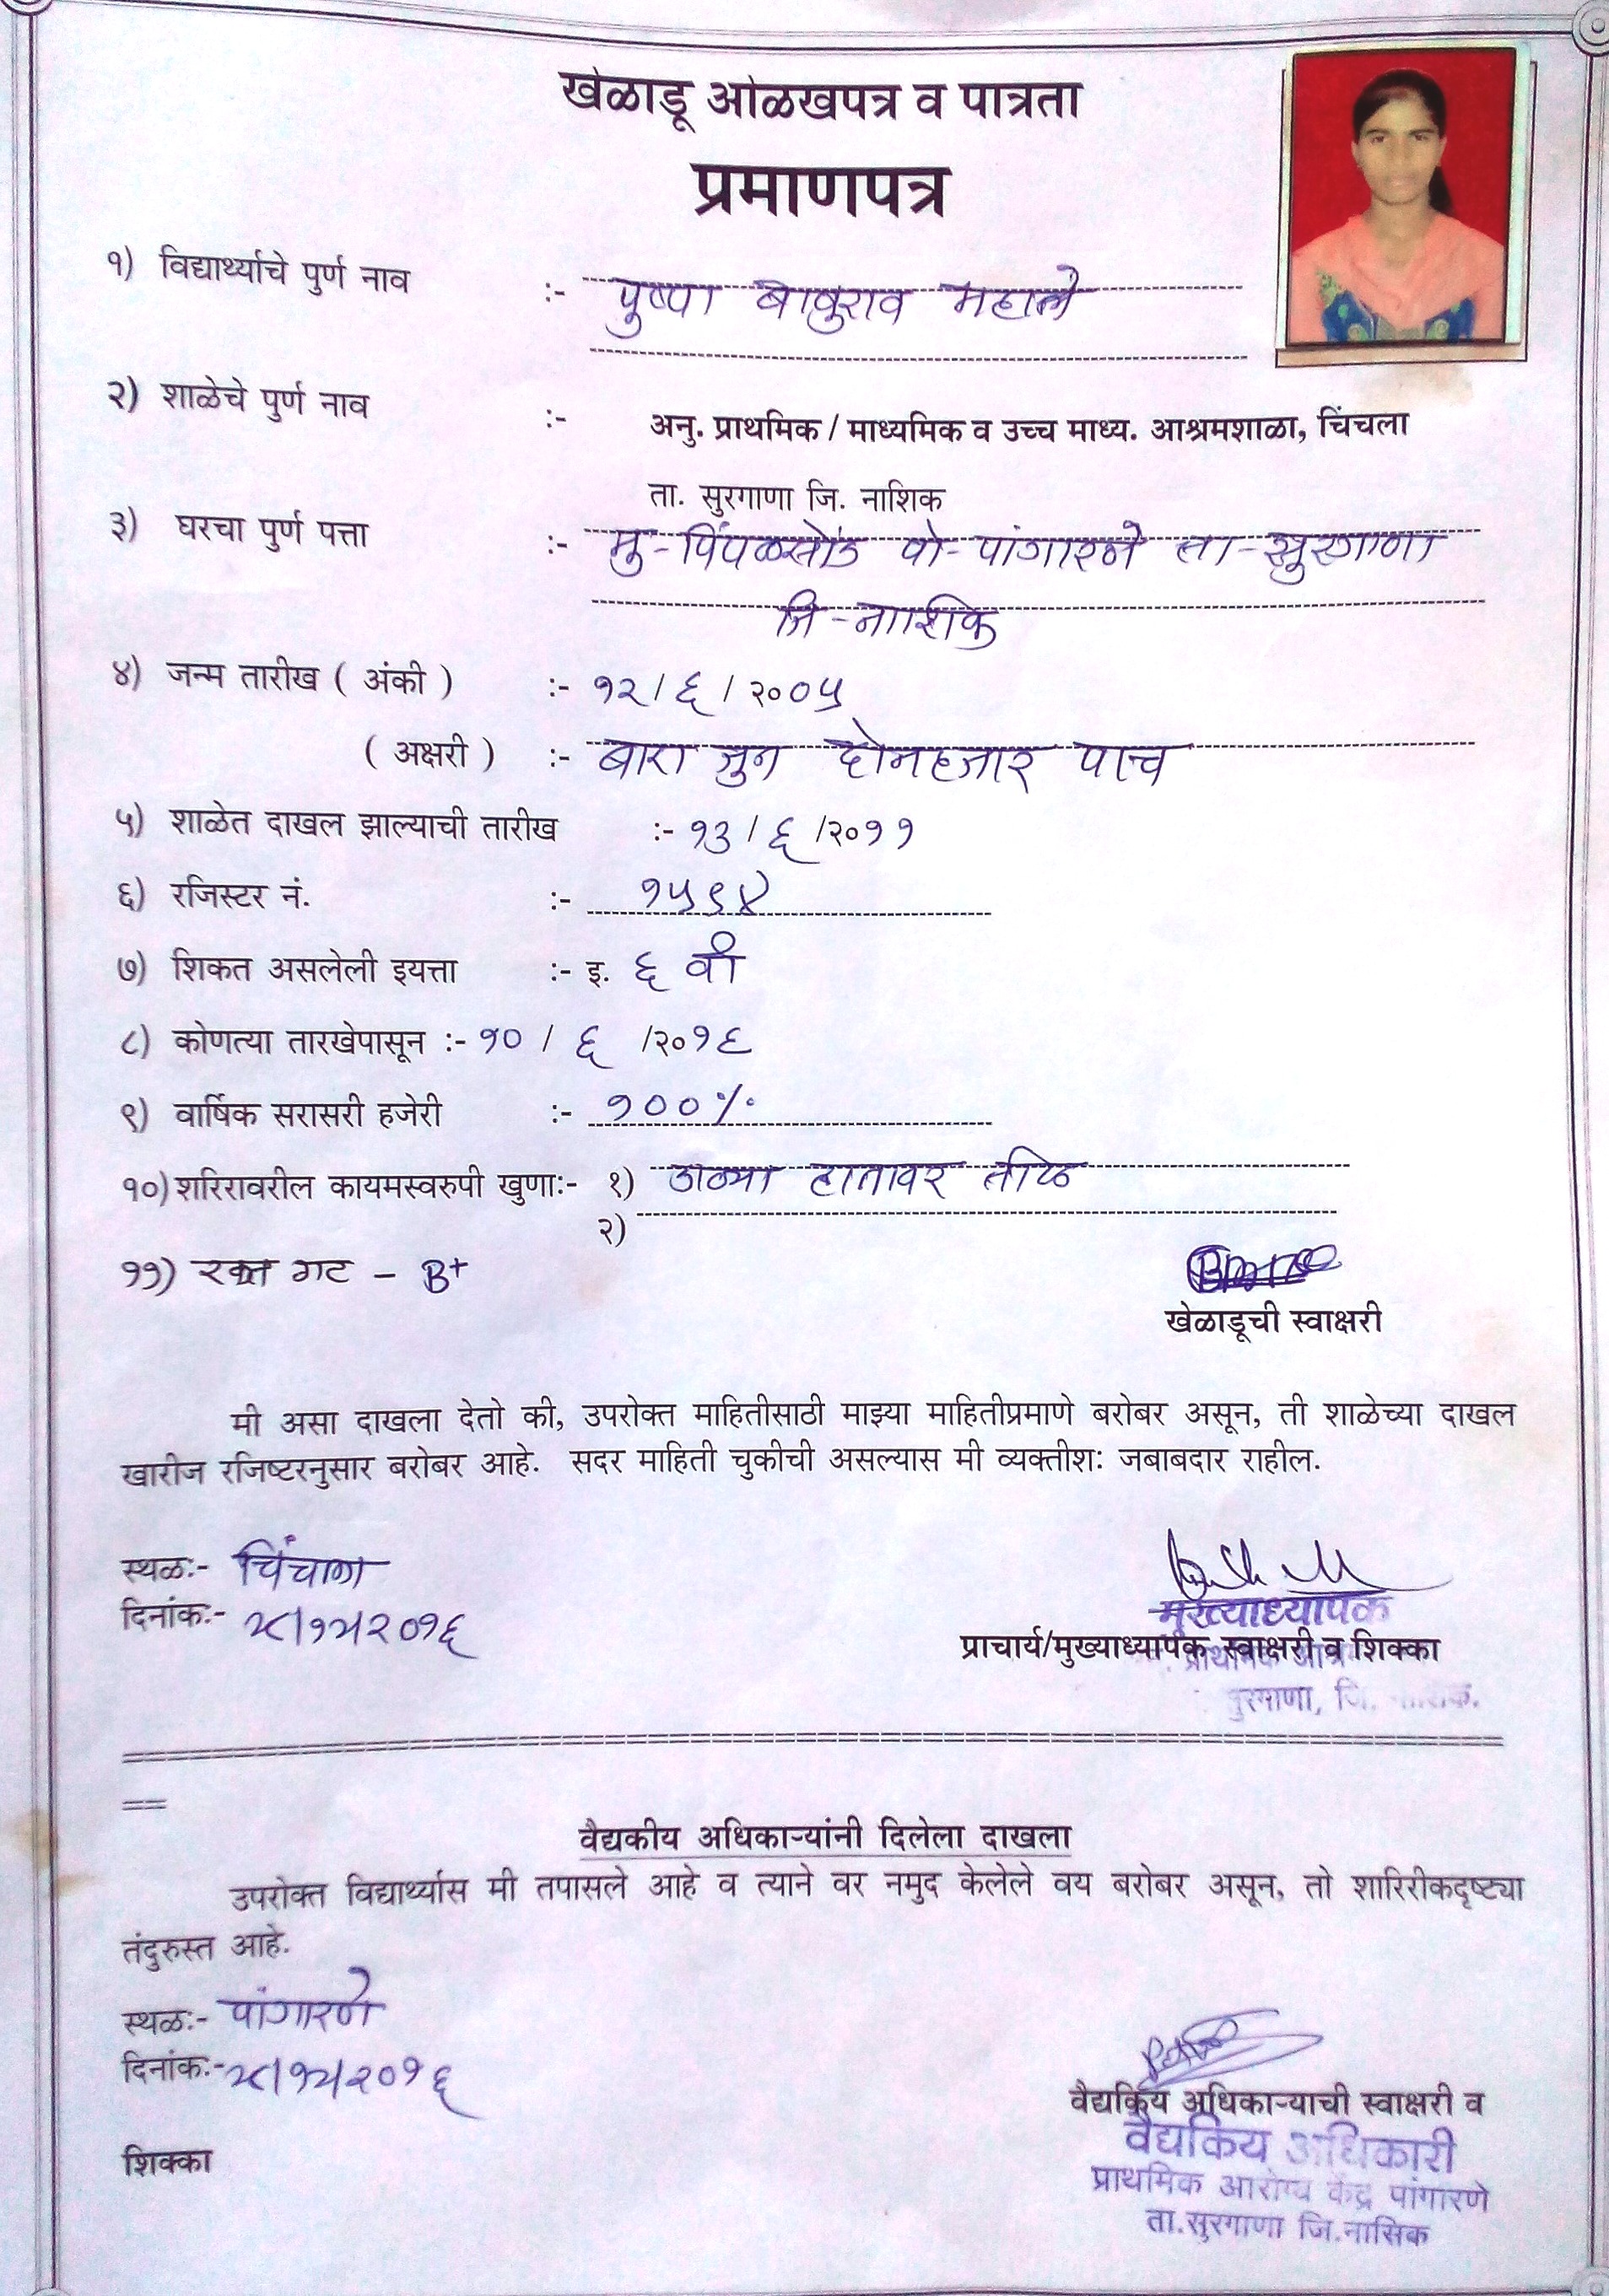 खेळाडू ओळखपत्र व पात्रता
प्रमाणपत्र
१) विद्यार्थ्याचे पुर्ण नाव :- पुष्पा बाबुराव महाले
२) शाळेचे पुर्ण नाव :- अनु. प्राथमिक / माध्यमिक व उच्च माध्य. आश्रमशाळा, चिंचला
ता. सुरगाणा जि. नाशिक
३) घरचा पुर्ण पत्ता :- मु-पिंपळसोंड पो-पांगारने ता-सुरगाणा
जि-नाशिक
४) जन्म तारीख ( अंकी ) :- १२ / ६ / २००५
( अक्षरी ) :- बारा जुन दोनहजार पाच
५) शाळेत दाखल झाल्याची तारीख :- १३ / ६ /२०११
६) रजिस्टर नं. :- १५९४
७) शिकत असलेली इयत्ता :- इ. ६ वी
८) कोणत्या तारखेपासून :- १० / ६ /२०१६
९) वार्षिक सरासरी हजेरी :- १००%
१०) शरिरावरील कायमस्वरुपी खुणा:- १) डाव्या हातावर तीळ
२)
११) रक्त गट - B+
खेळाडूची स्वाक्षरी
मी असा दाखला देतो की, उपरोक्त माहितीसाठी माझ्या माहितीप्रमाणे बरोबर असून, ती शाळेच्या दाखल
खारीज रजिष्टरनुसार बरोबर आहे. सदर माहिती चुकीची असल्यास मी व्यक्तीशः जबाबदार राहील.
स्थळ:- चिंचला
दिनांक:- २८/१२/२०१६
मुख्याध्यापक
प्राचार्य/मुख्याध्यापक स्वाक्षरी व शिक्का
सुरगाणा, जि. नाशिक.
वैद्यकीय अधिकाऱ्यांनी दिलेला दाखला
उपरोक्त विद्यार्थ्यास मी तपासले आहे व त्याने वर नमुद केलेले वय बरोबर असून, तो शारिरीकदृष्ट्या
तंदुरुस्त आहे.
स्थळ:- पांगारणे
दिनांक:- २८/१२/२०१६
वैद्यकिय अधिकाऱ्याची स्वाक्षरी व
शिक्का
वैद्यकिय अधिकारी
प्राथमिक आरोग्य केंद्र पांगारणे
ता.सुरगाणा जि.नासिक